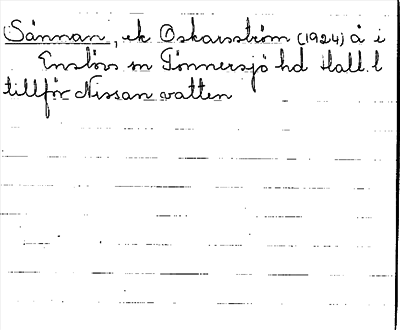 Sännan, ek Oskarström (1924) å i
Enslövs sn Tönnersjö hd Hall. l
tillför Nissan vatten